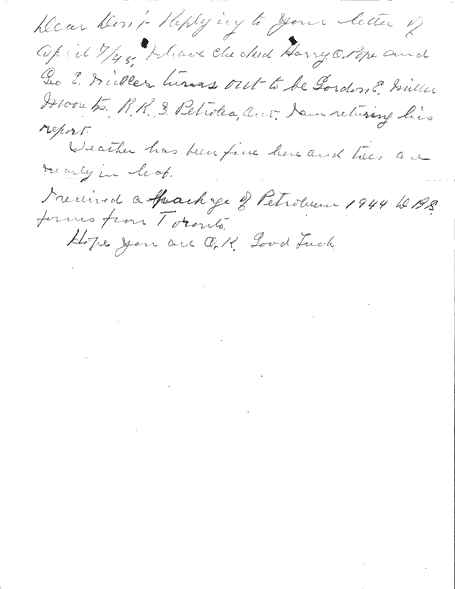 Dear Don:- Replying to your letter of
April 7/45, I have checked Harry O. Pope and
Geo E. Miller turns out to be Gordon E. Miller
R.R. 3. Petrolea, Ont. I am returning his
report.
Weather has been fine here and trees are
nearly in leaf.
I received a package of Petroleum 1944 D.B.S.
forms from Toronto.
Hope you are O.K. Good Luck